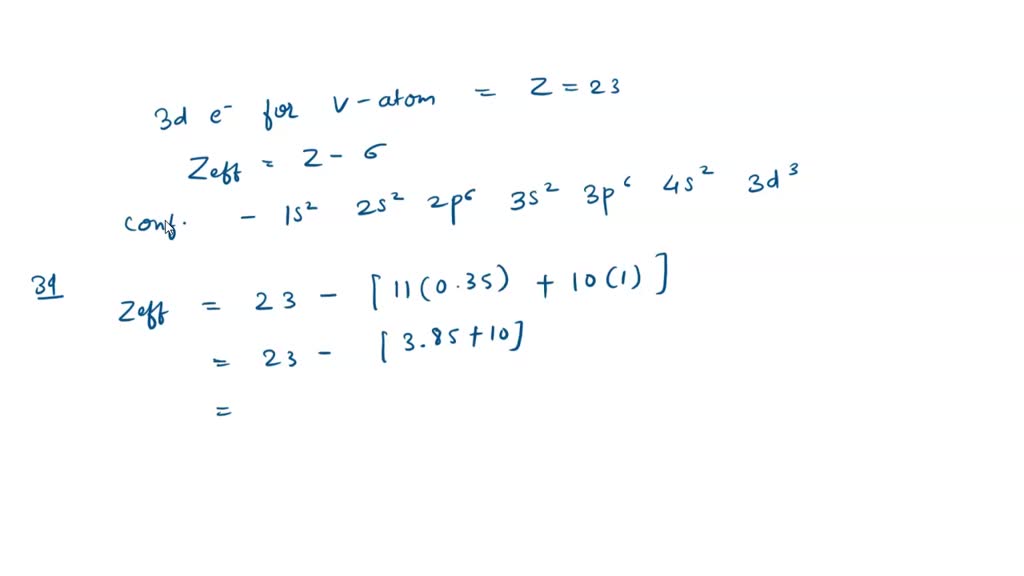 3d e⁻ for V-atom = Z = 23
Zeff = Z - σ
conf. - 1s² 2s² 2p⁶ 3s² 3p⁶ 4s² 3d³
3d Zeff = 23 - [11(0.35) + 10(1)]
= 23 - [3.85+10]
=